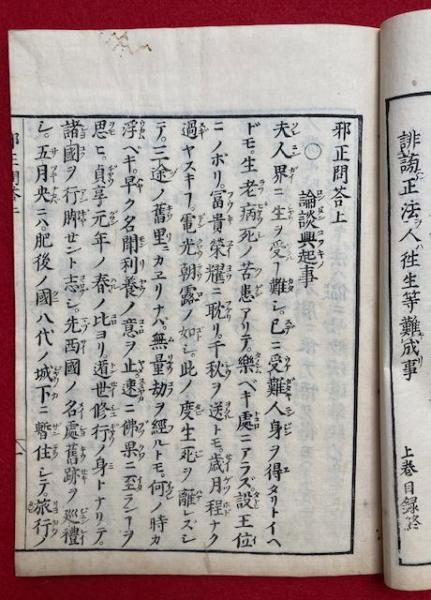 誹謗正法人往生等難成事
上巻目録終
邪正問答上
〇論談興起事
夫人界ニ生ヲ受ケ難シ。已ニ受難人身ヲ得タリトイヘ
ドモ。生老病死ノ苦患アリテ。樂ベキ處ニアラズ設王位
ニノボリ。冨貴榮耀ニ耽リ千秋ヲ送トモ。歳月程ナク
過ヤスキヿ。電光朝露ノ如シ。此ノ度生死ヲ離レズシ
テ。三途ノ舊里ニカエリナバ。無量劫ヲ經ルトモ。何ノ時カ
浮ベキ。早ク名聞利養ノ意ヲ止速ニ佛果ニ至ランヿヲ
思ヒ。貞享元年ノ春ノ比ヨリ遁世修行ノ身トナリテ。
諸國ヲ行脚セント志シ。先西國ノ名處舊跡ヲ巡禮
シ。五月央ニハ。肥後ノ國八代ノ城下ニ暫住シテ。旅行ノ